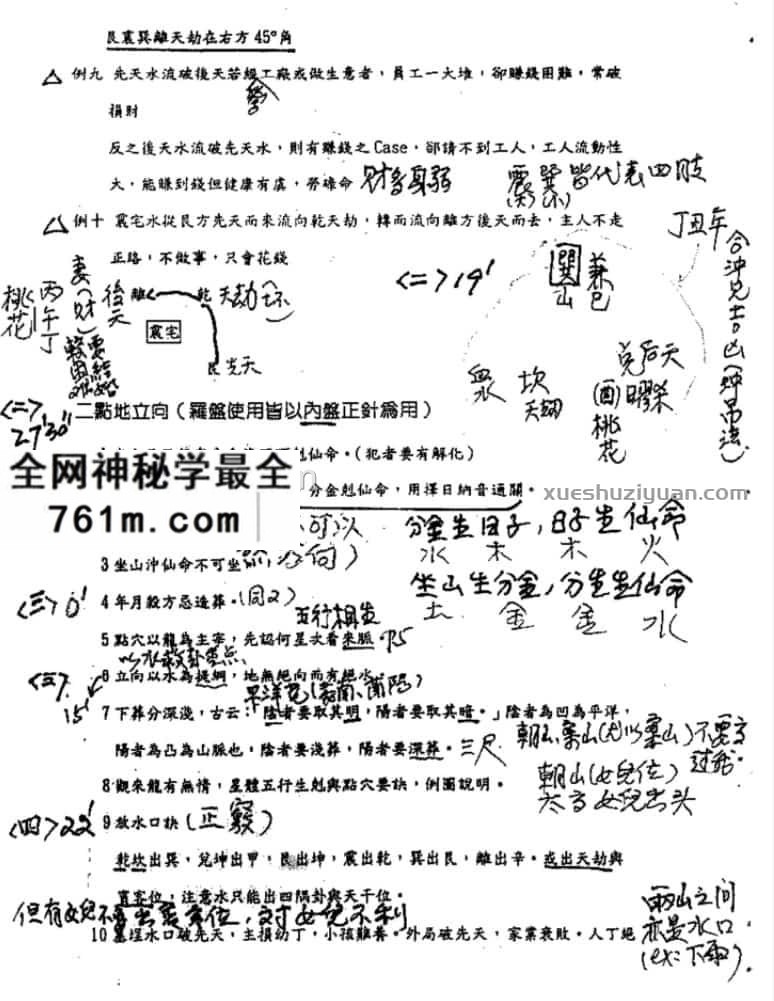 艮震巽離天劫在右方45°角
△ 例九 先天水流破後天若經工廠或做生意者，員工一大堆，卻賺錢困難，常破
營
損財
反之後天水流破先天水，則有賺錢之Case，卻請不到工人，工人流動性
大，能賺到錢但健康有虞，勞碌命 財多身弱 震巽皆代表四肢
△ 例十 震宅水從艮方先天而來流向乾天劫，轉而流向離方後天而去，主人不走
丁丑年
正路，不做事，只會花錢
<二>19'
巽山 兼巳
桃花 丙午丁 妻(財) 後天 離 乾 天劫(坏)
震宅
艮先天
兌后天
坎 天劫
(酉)曜殺
桃花
<二>27'30"
二點地立向（羅盤使用皆以內盤正針為用）
剋仙命。(犯者要有解化)
全网神秘学最全
761m.com
分金剋仙命，用擇日納音通關。
xueshuziyuan.com
可以 分金生日子，日子生仙命
水 木 木 火
3 坐山沖仙命不可坐
坐山生分金，分金生仙命
土 金 金 水
<三>0'
4 年月殺方忌造葬。(同2)
五行相生
5 點穴以龍為主宰，先認何星次看來脈
<三>15'
6 立向以水為提綱，地無絕向而有絕水
7 下葬分深淺，古云：「陰者要取其明，陽者要取其暗。」陰者為凹為平洋，
陽者為凸為山脈也，陰者要淺葬，陽者要深葬。三尺
朝山(女兒位)
太高女兒出头
8 觀來龍有無情，星體五行生剋與點穴要訣，例圖說明。
<四>22'
9 放水口訣(正竅)
乾坎出巽，兌坤出甲，艮出坤，震出乾，巽出艮，離出辛。或出天劫與
賓客位，注意水只能出四隅卦與天干位。
兩山之間
亦是水口
(ex:下雨)
10 墓埕水口破先天，主損幼丁，小孩難養。外局破先天，家業衰敗。人丁絕